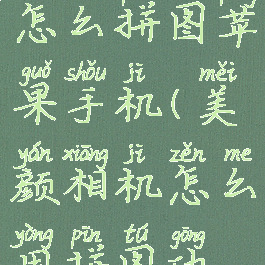 怎么拼图苹
guǒ shǒu jī měi
果手机(美
yán xiāng jī zěn me
颜相机怎么
yòng pīn tú gōng